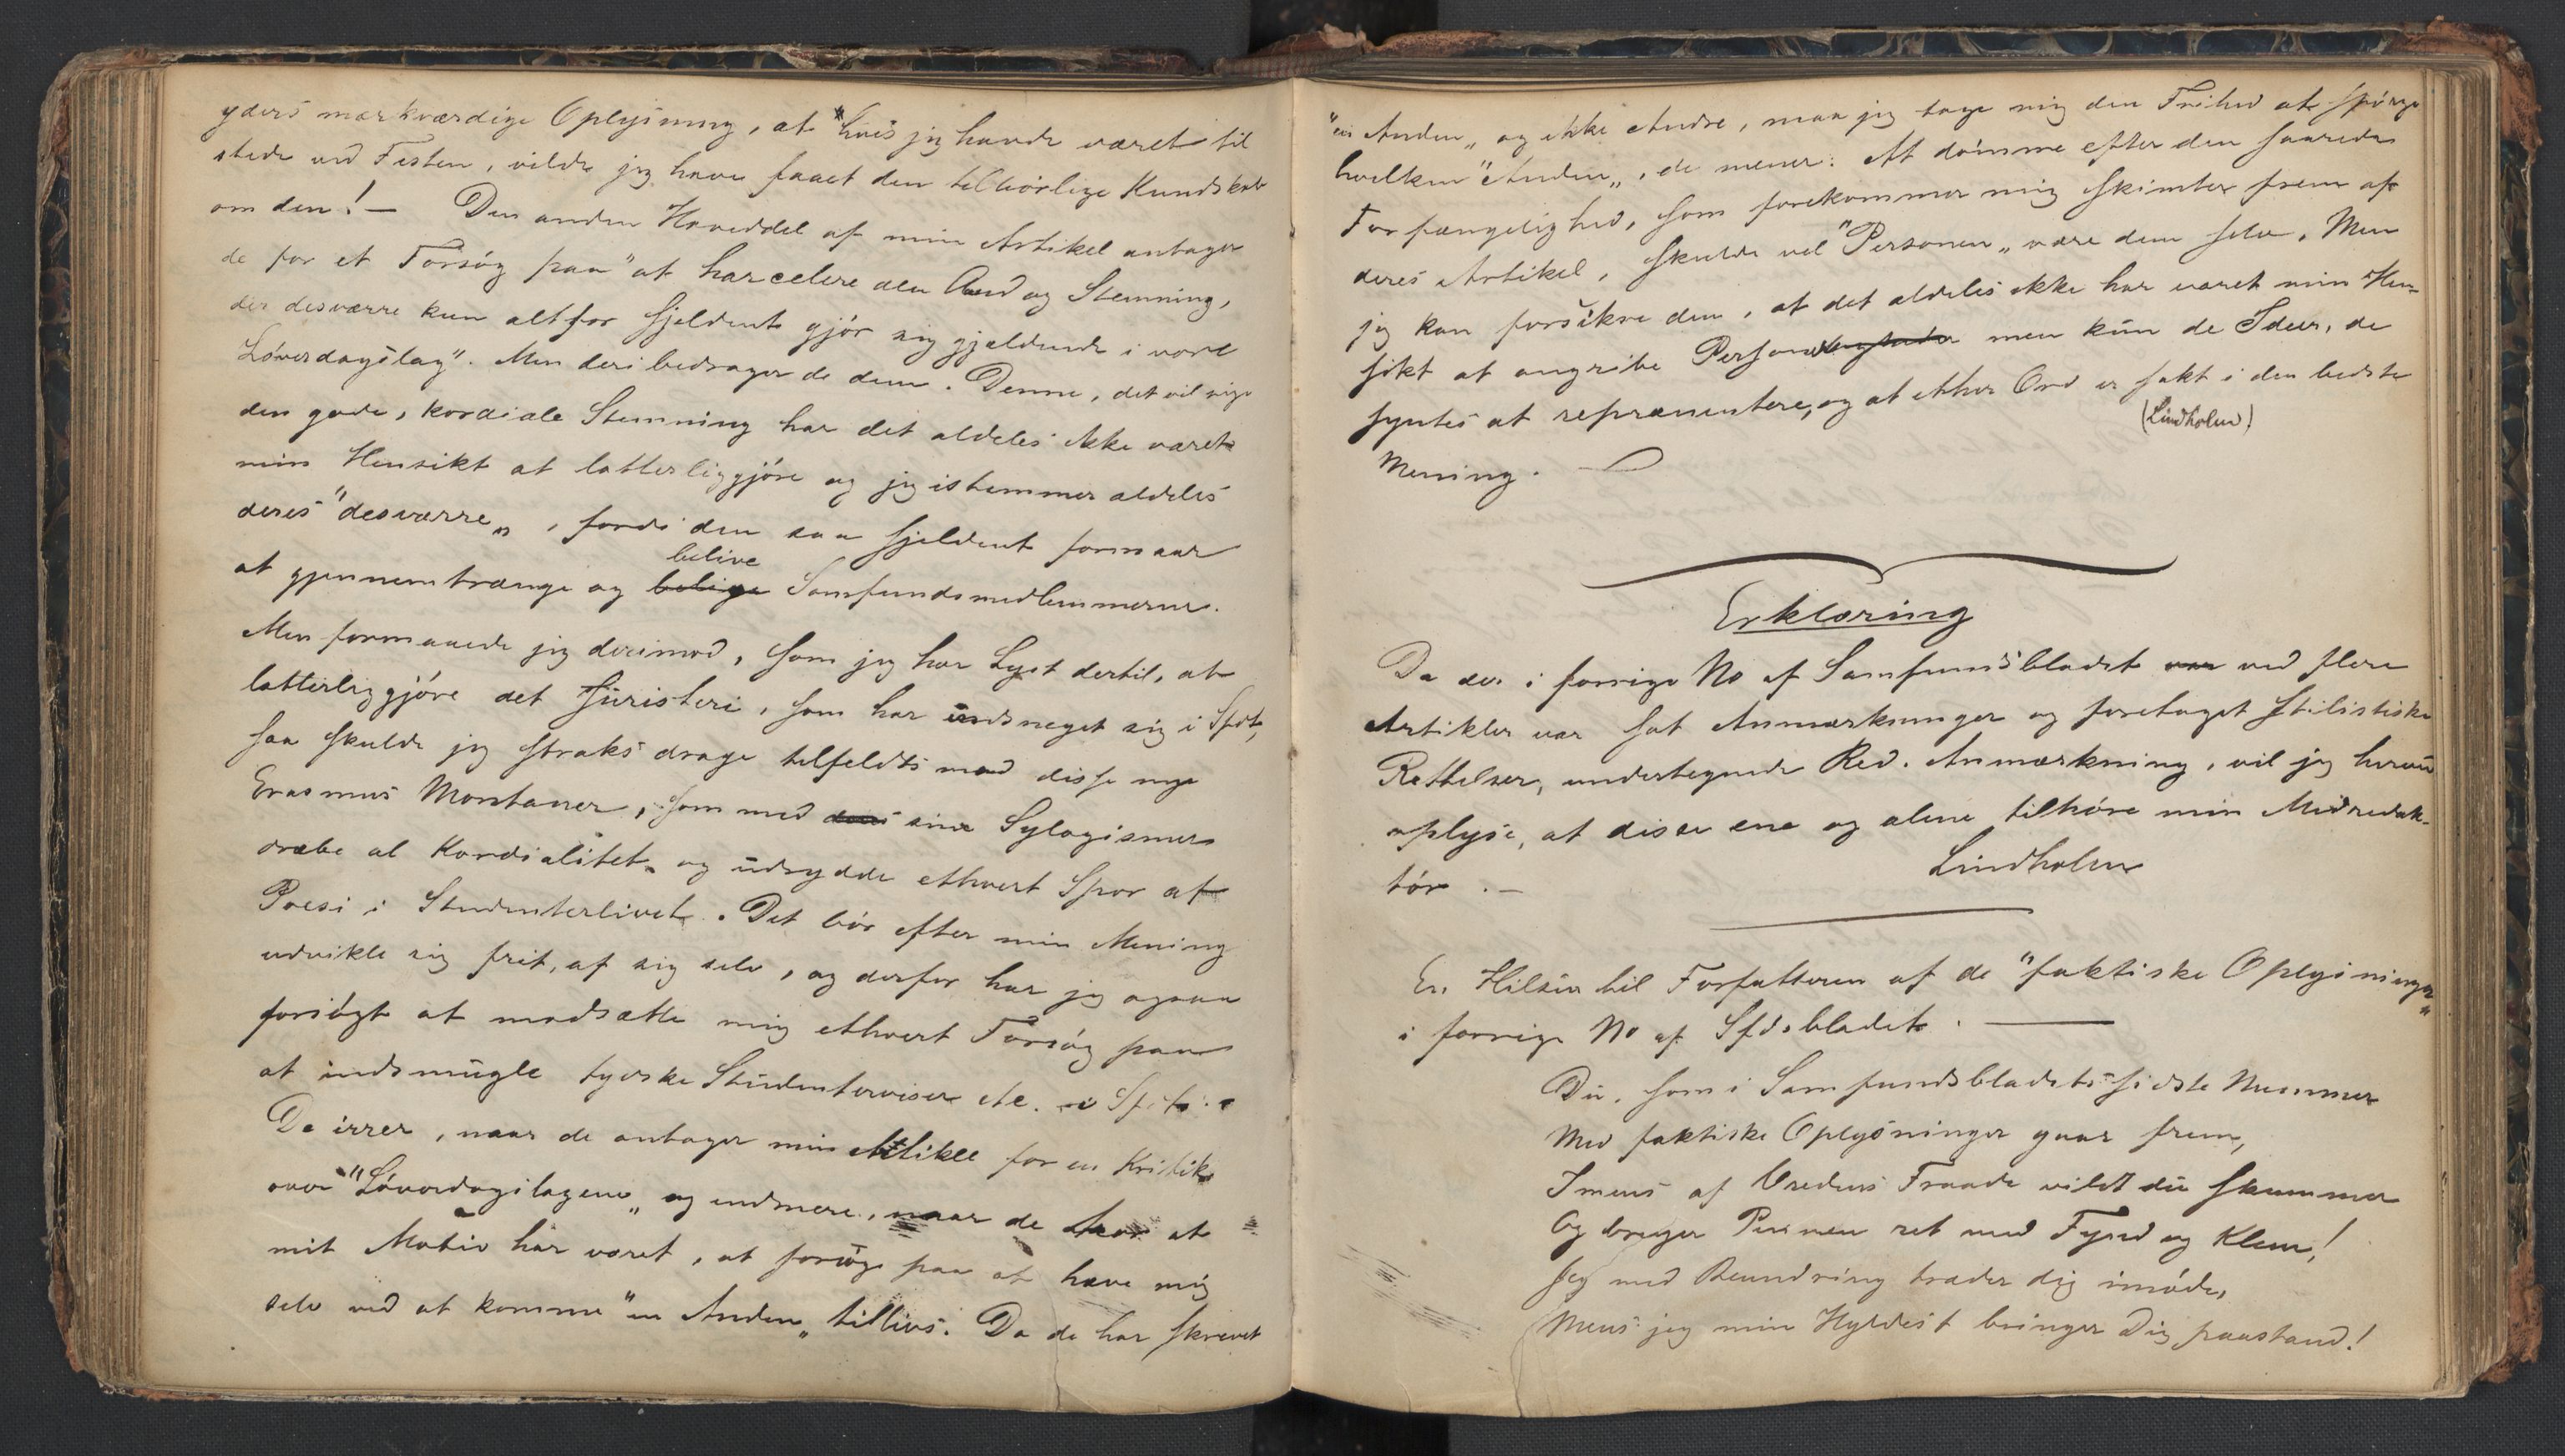 yders mærkværdige Oplysning, at "hvis jeg havde været til
stede ved Festen, vilde jeg have faaet den tilbörlige Kundskab
om den! — Den anden Hoveddel af min Artikel antager
de for et Forsög paa "at harcelere den Aand og Stemning,
der desværre kun altfor sjeldent gjör sig gjeldende i vore
Löverdagslag". Men deri bedrager de dem. Denne, det vil sige
den gode, kordiale Stemning har det aldeles ikke været
min Hensikt at latterliggjöre og jeg istemmer aldeles
deres "desværre„, fordi den saa sjeldent formaar
belive
at gjennemtrænge og belige Samfundsmedlemmerne.
Men formaaede jeg derimod, som jeg har Lyst dertil, at
latterliggjöre det Juristeri, som har indsneget sig i Sfdt,
saa skulde jeg straks drage tilfelts mod disse nye
Erasmus Montaner, som med sine Sylogismer
dræbe al Kordialitet og udrydde ethvert Spor af
Poesi i Studenterlivet. Det bör efter min Mening
udvikle sig frit, af sig selv, og derfor har jeg ogsaa
forsögt at modsætte mig ethvert Forsög paa
at indsmugle tydske Studenterviser etc. i Sfdt.
De irrer, naar de antager min Artikel for en Kritik
over "Löverdagslagene„ og endmere, naar de tror at
mit Motiv har været, at forsöge paa at hæve mig
selv ved at komme "en Anden„ tillivs. Da de har skrevet
"en Anden„ og ikke Andre, maa jeg tage mig den Frihed at spörge
hvilken "Anden„, de mener. At dömme efter den saarede
Forfængelighed, som forekommer mig skimter frem af
deres Artikel, skulde vel "Personen„ være dem selv. Men
jeg kan forsikre dem, at det aldeles ikke har været min Hen-
sikt at angribe Person men kun de Ideer, de
syntes at repræsentere, og at ethvert Ord er sakt i den bedste
(Lindholm)
Mening.
Erklæring
Da der i forrige No af Samfundsbladet ved flere
Artikler var sat Anmærkninger og foretaget stilistiske
Rettelser, undertegnede Red. Anmærkning, vil jeg herved
oplyse, at disse ene og alene tilhöre min Medredak-
tör. —
Lindholm
En Hilsen til Forfatteren af de "faktiske Oplysninger„
i forrige No af Sfdsbladet. —
Du, som i Samfundsbladets sidste Nummer
Med faktiske Oplysninger gaar frem,
Imens af Vredens Fraade vildt du skummer
Og bruger Pennen ret med Fynd og Klem!
Jeg med Beundring træder dig imöde,
Mens jeg min Hyldest bringer Dig paastand!